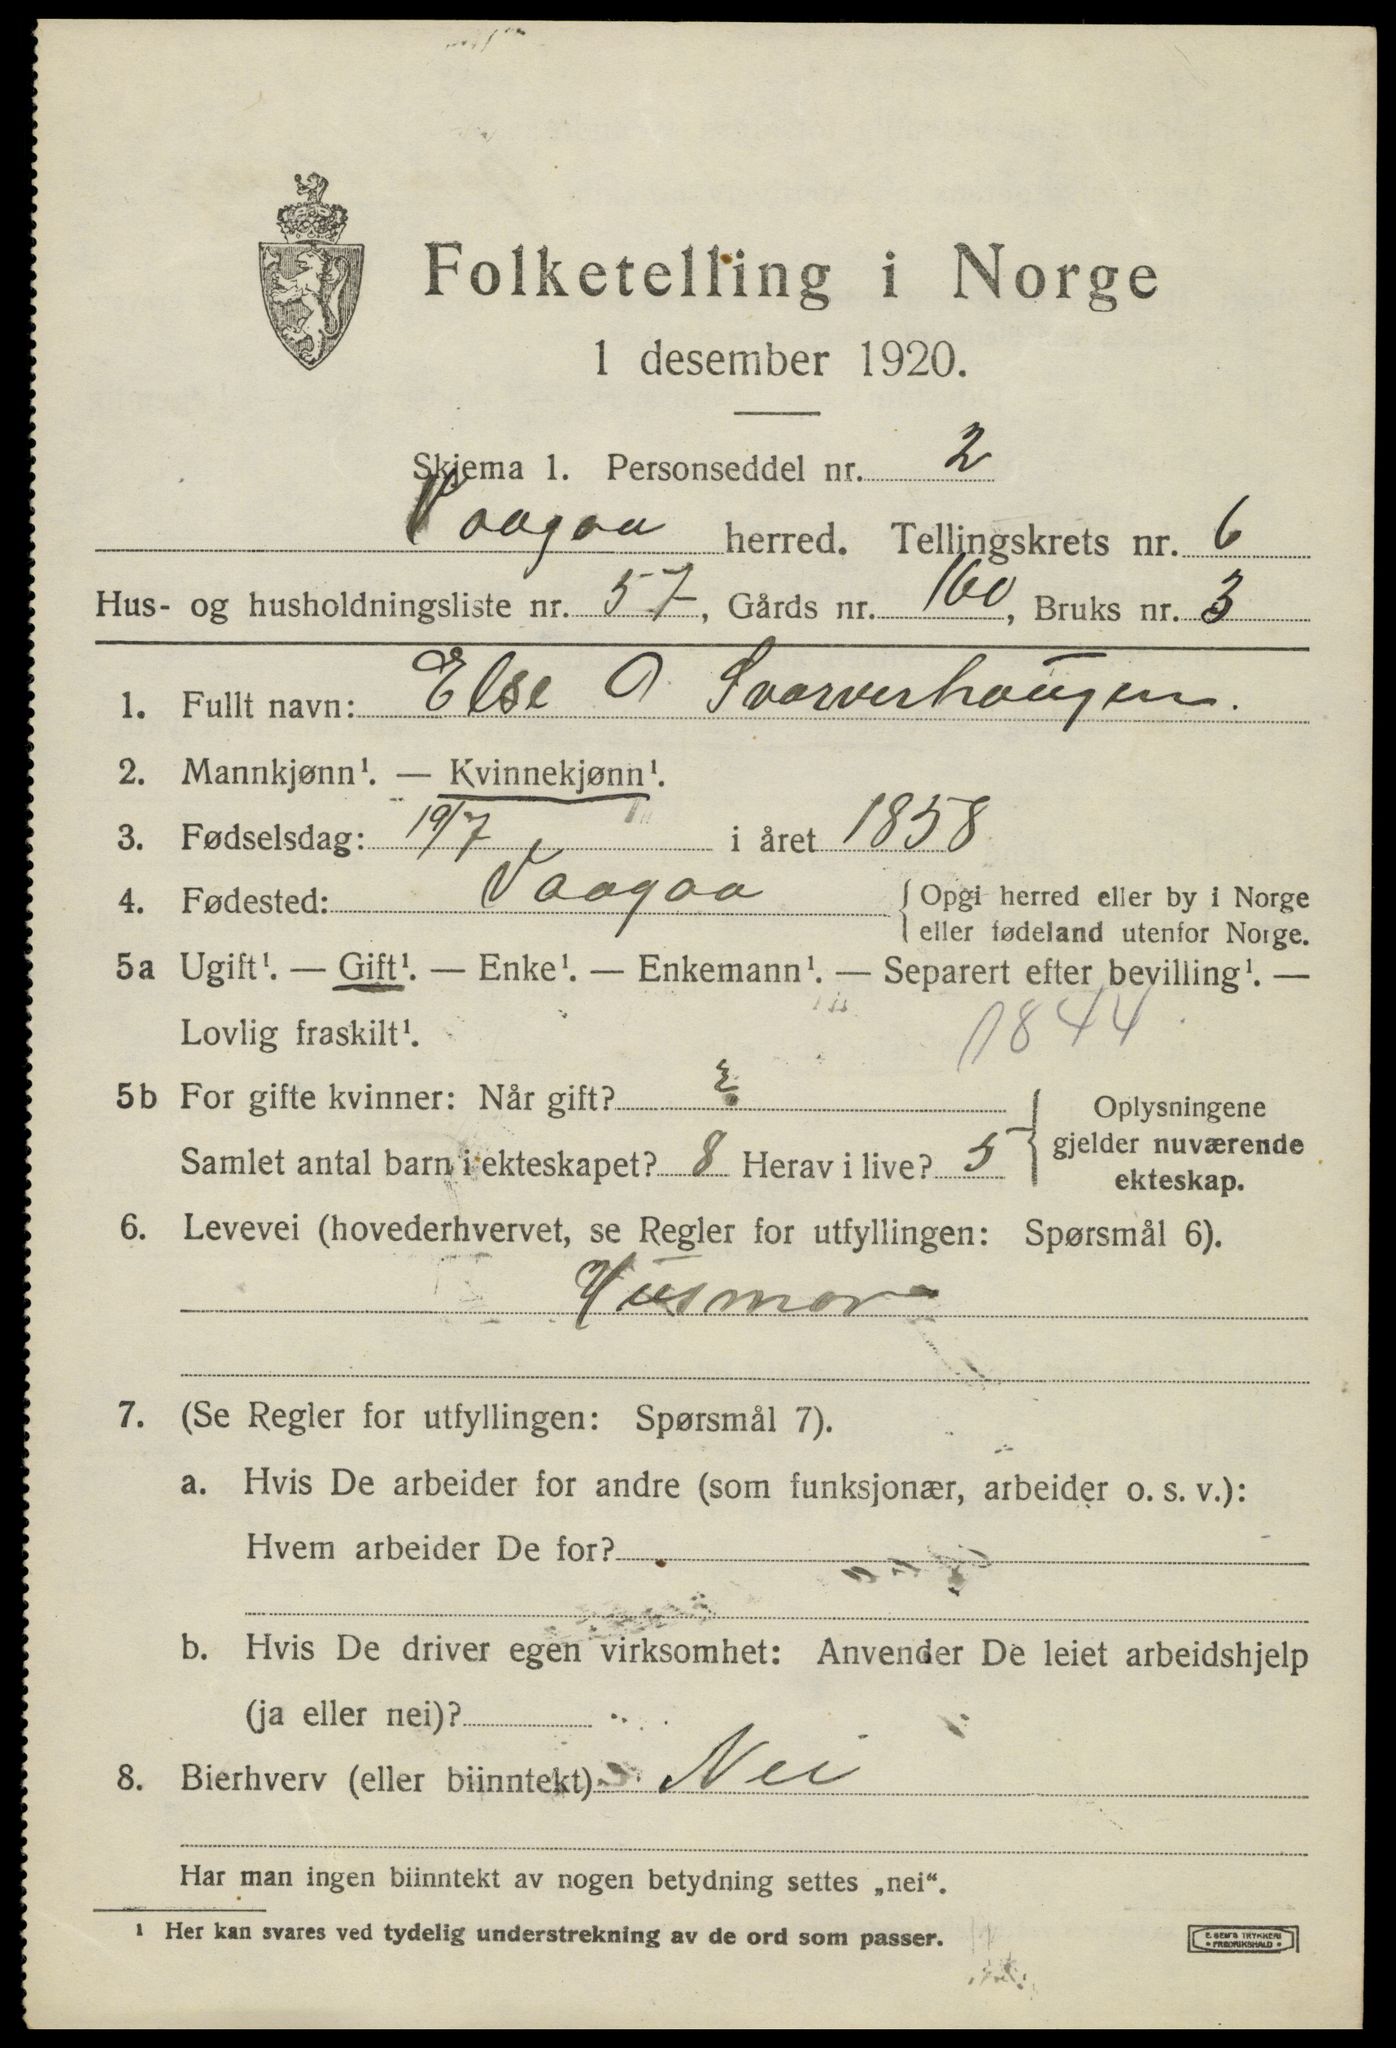 Folketelling i Norge
1 desember 1920.
Skjema 1. Personseddel nr. 2
Vaagaa herred. Tellingskrets nr. 6
Hus- og husholdningsliste nr. 57, Gårds nr. 160, Bruks nr. 3
1. Fullt navn: Else O. Svarverhaugen.
2. Mannkjønn¹. — Kvinnekjønn¹.
3. Fødselsdag: 19/7 i året 1858
4. Fødested: Vaagaa { Opgi herred eller by i Norge
eller fødeland utenfor Norge.
5a Ugift¹. — Gift¹. — Enke¹. — Enkemann¹. — Separert efter bevilling¹. —
Lovlig fraskilt¹. 1844
5b For gifte kvinner: Når gift?
Samlet antal barn i ekteskapet? 8 Herav i live? 5
Oplysningene
gjelder nuværende
ekteskap.
6. Levevei (hovederhvervet, se Regler for utfyllingen: Spørsmål 6).
Husmor
7. (Se Regler for utfyllingen: Spørsmål 7).
a. Hvis De arbeider for andre (som funksjonær, arbeider o. s. v.):
Hvem arbeider De for?
b. Hvis De driver egen virksomhet: Anvender De leiet arbeidshjelp
(ja eller nei)?
8. Bierhverv (eller biinntekt) Nei
Har man ingen biinntekt av nogen betydning settes „nei“.
¹ Her kan svares ved tydelig understrekning av de ord som passer.
E. SEM'S TRYKKERI
• FREDRIKSHALD •